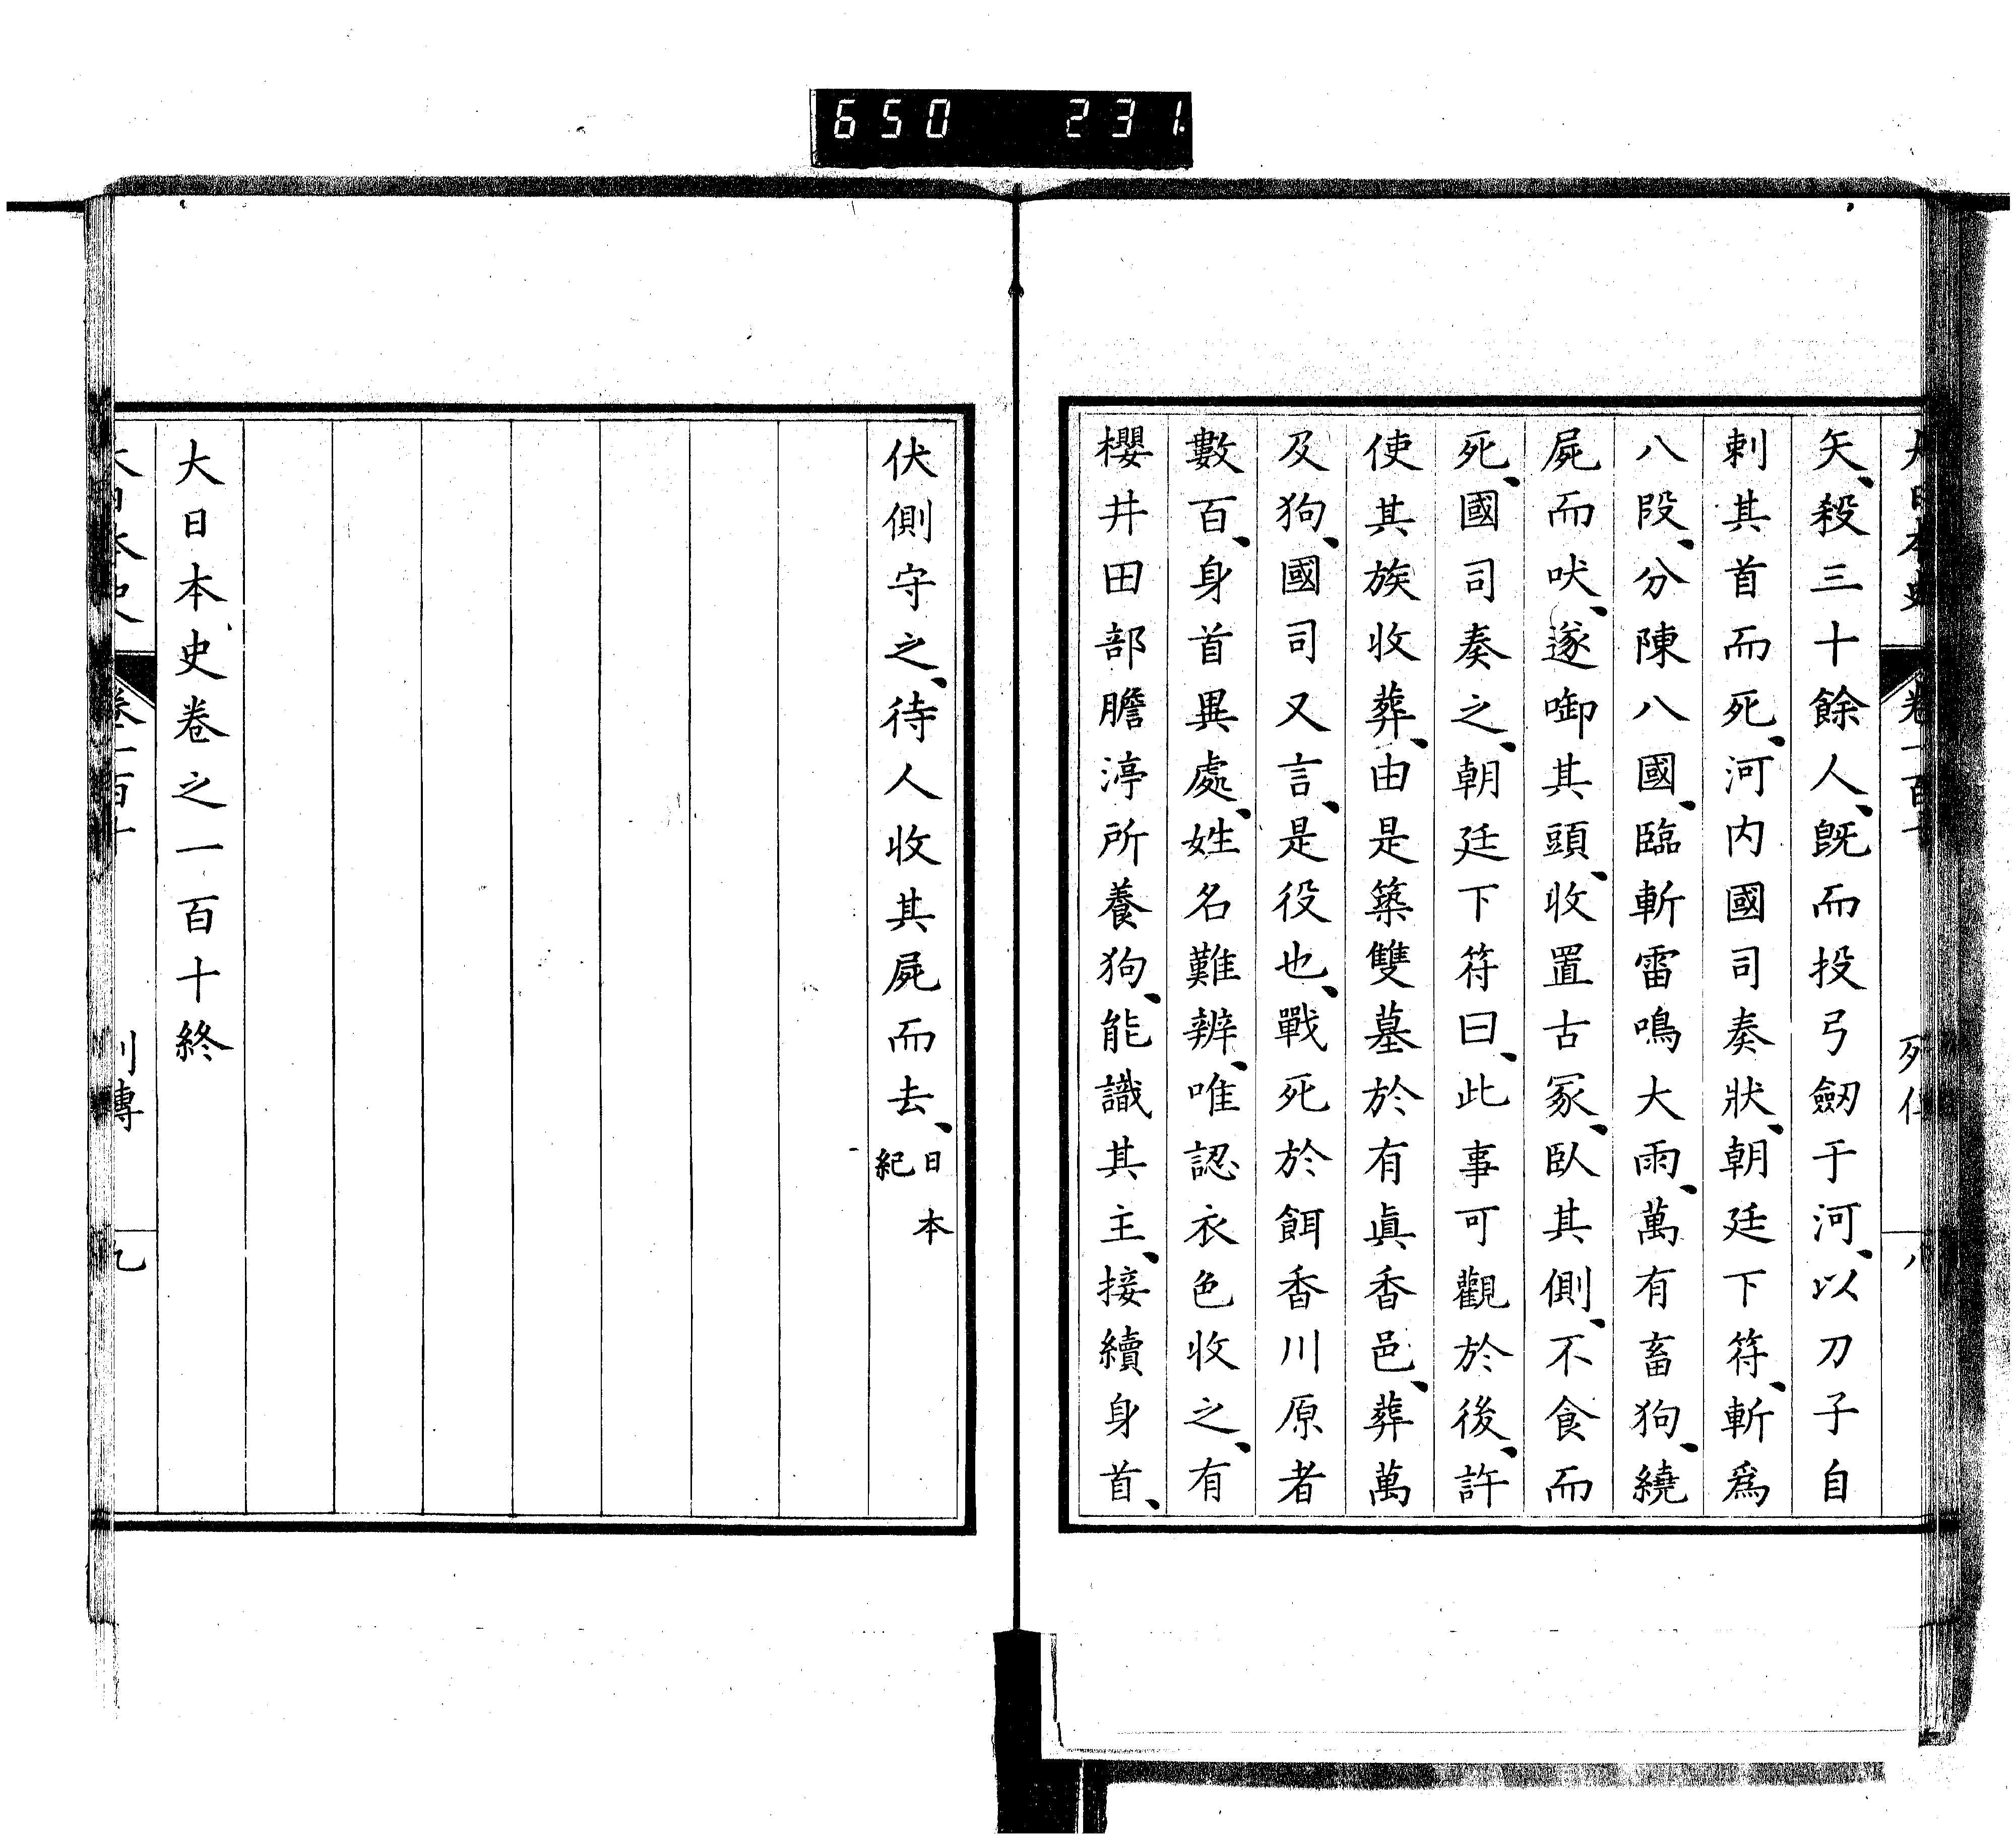 650 231.
矢、殺三十餘人、既而投弓劒于河、以刀子自
刺其首而死、河內國司奏狀、朝廷下符、斬爲
八段、分陳八國、臨斬雷鳴大雨、萬有畜狗、繞
屍而吠、遂啣其頭、收置古冢、臥其側、不食而
死、國司奏之、朝廷下符曰、此事可觀於後、許
使其族收葬、由是築雙墓於有眞香邑、葬萬
及狗、國司又言、是役也、戰死於餌香川原者
數百、身首異處、姓名難辨、唯認衣色收之、有
櫻井田部膽渟所養狗、能識其主、接續身首、
伏側守之、待人收其屍而去、日本紀
大日本史卷之一百十終
大日本史 卷一百十 列傳 九